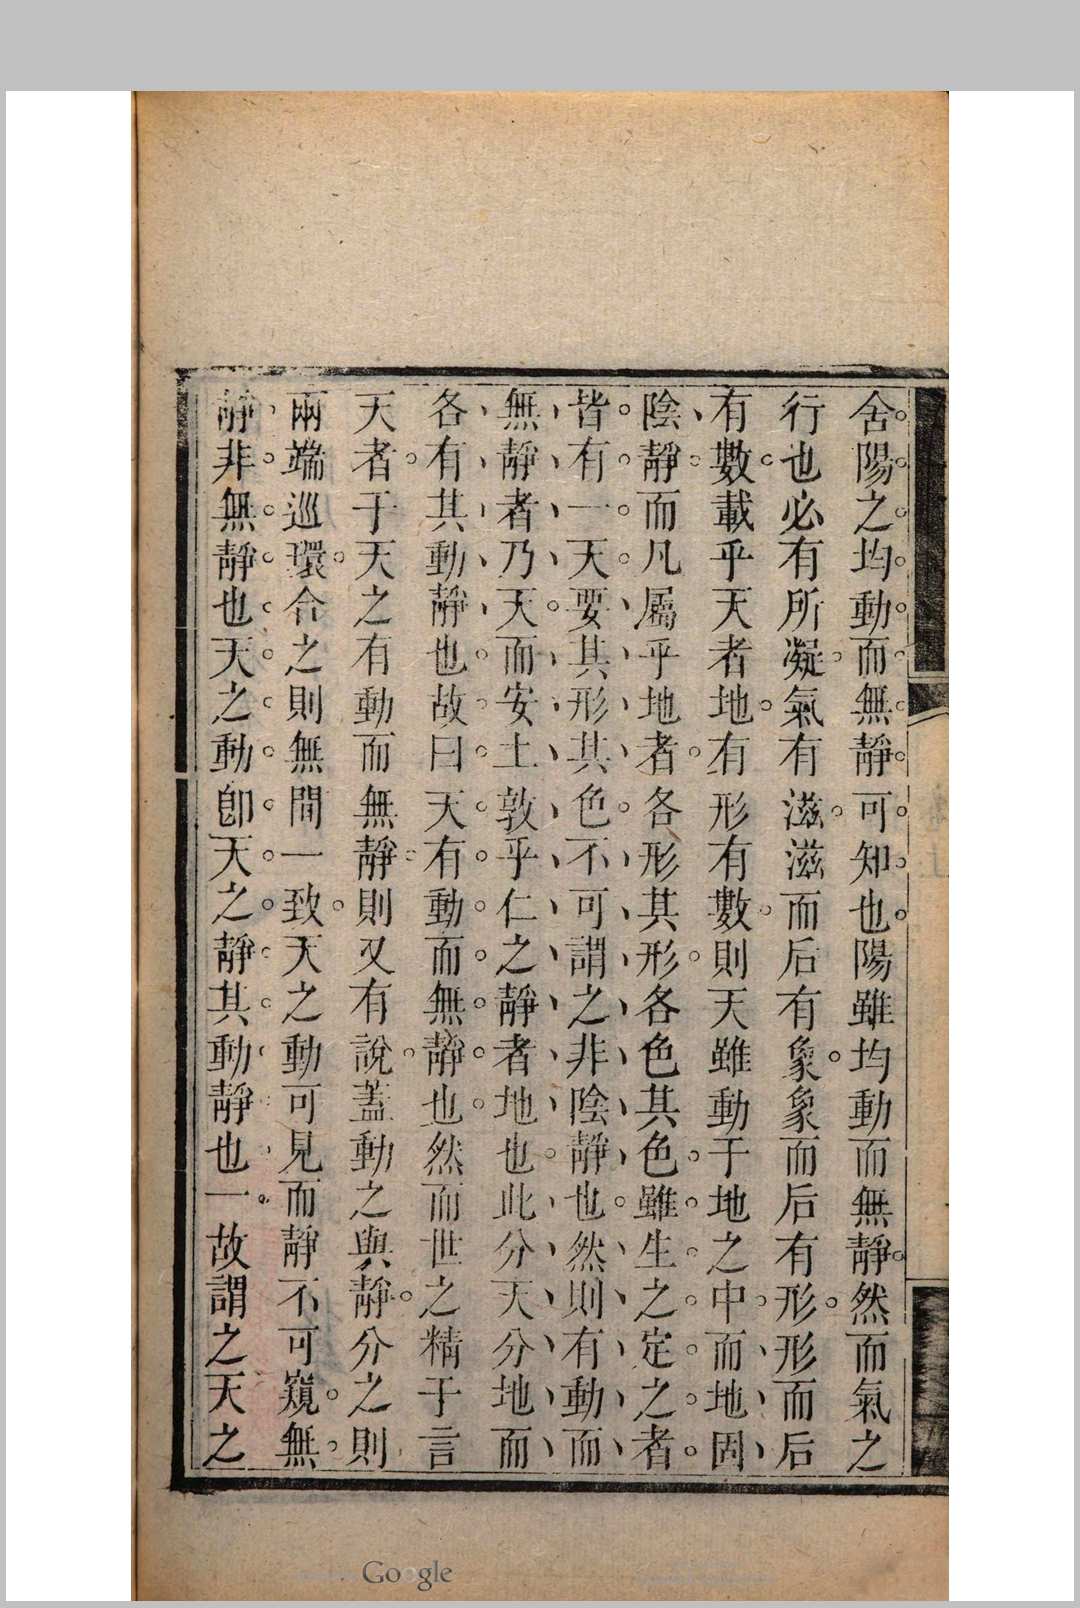 舍陽之均動而無靜可知也陽雖均動而無靜然而氣之
行也必有所凝氣有滋滋而后有象象而后有形形而后
有數載乎天者地有形有數則天雖動于地之中而地固
陰靜而凡屬乎地者各形其形各色其色雖生之定之者
皆有一天要其形其色不可謂之非陰靜也然則有動而
無靜者乃天而安土敦乎仁之靜者地也此分天分地而
各有其動靜也故曰天有動而無靜也然而世之精于言
天者于天之有動而無靜則又有說蓋動之與靜分之則
兩端巡環合之則無間一致天之動可見而靜不可窺無
靜非無靜也天之動卽天之靜其動靜也一故謂之天之
Google